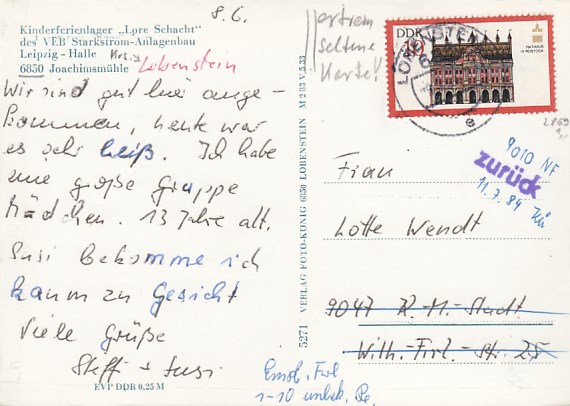 8. 6.
Kinderferienlager „Lore Schacht"
des VEB Starkstrom-Anlagenbau
Leipzig - Halle Krs.
6850 Joachimsmühle Lobenstein
Wir sind gut hier ange-
kommen, heute war
es sehr heiß. Ich habe
eine große Gruppe
Mädchen. 13 Jahre alt.
Susi bekomme ich
kaum zu Gesicht
Viele Grüße
Steffi + Susi
EVP DDR 0,25 M
5271 VERLAG FOTO-KÖNIG 6850 LOBENSTEIN M 2/83 V,5,33
extrem
seltene
Karte!
DDR
10
RATHAUS
IN ROSTOCK
LOBENSTEIN
e
2869
9010 NF
zurück
11.7.84
Frau
Lotte Wendt
9047 K.-M.-Stadt
Wilh.-Firl.-Str. 25
1-10 unbek.